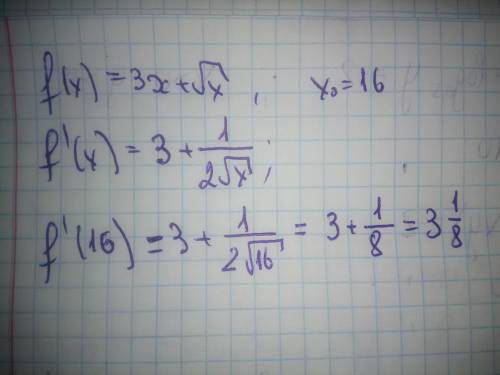 f(x) = 3x + √x ; x₀ = 16
f'(x) = 3 + 1/(2√x) ;
f'(16) = 3 + 1/(2√16) = 3 + 1/8 = 3 1/8